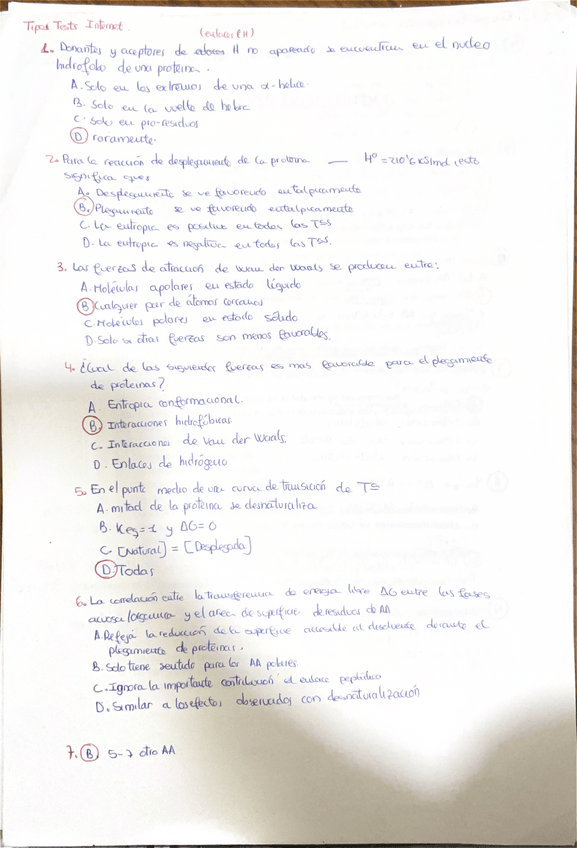 Tipos Tests Internet.
(enlaces H)
1. Donantes y aceptores de H no apareado se encuentran en el nucleo
hidrofobo de una proteína.
A. Solo en los extremos de una α-helice
B. Solo en la vuelta de hebra
C. Solo en pro-residuos
D. raramente.
2. Para la reacción de desplegamiento de la proteína — Hº = 210'6 KJ/mol esto
significa que:
A. Desplegamiento se ve favorecido entalpicamente
B. Plegamiento se ve favorecido entalpicamente
C. La entropia es positiva en todas las TSS
D. La entropia es negativa en todas las TSS.
3. Las fuerzas de atracción de Van der Waals se producen entre:
A. Moléculas apolares en estado líquido
B. Cualquier par de átomos cercanos
C. Moléculas polares en estado sólido
D. Solo si otras fuerzas son menos favorables.
4. ¿Cual de las siguientes fuerzas es mas favorable para el plegamiento
de proteinas?
A. Entropia conformacional.
B. Interacciones hidrofóbicas
C. Interacciones de Van der Waals.
D. Enlaces de hidrógeno
5. En el punto medio de una curva de transición de TS
A. mitad de la proteína se desnaturaliza
B. Keq = 1 y ΔG = 0
C. [Natural] = [Desplegada]
D. Todas
6. La correlación entre la transferencia de energía libre ΔG entre las fases
acuosa/organica y el area de superficie de residuos de AA
A. Refleja la reducción de la superficie accesible al disolvente durante el
plegamiento de proteínas.
B. Solo tiene sentido para los AA polares
C. Ignora la importante contribución el enlace peptídico
D. Similar a los efectos observados con desnaturalización
7. B. 5-7 otro AA